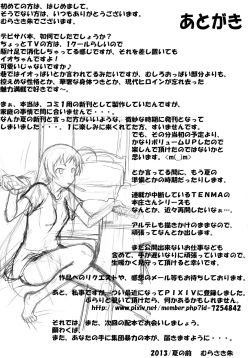 あとがき
初めての方は、はじめまして、
そうでない方は、いつもありがとうございます。
むらさき朱でございます。
テビサバ本、如何でしたでしょうか?
ちょっとTVの方は、1クールらしいので
駆け足で消化しちゃってる感じですが、それを差し置いても
イオちゃんですよ!
可愛いじゃないですか♪
後ではイオっぱいとか言われてるみたいですが、むしろおっぱい部分よりも、
控えめな性格とか、華奢な身体つきとか、現代ヒロインが忘れ去った
魅力満載で好きです~。
まぁ、本当は、コミ1用の新刊として製作していたんですが、
家庭の事情で間に合わなくなってしまい、
なんか夏の新刊と言った方がいいような、微妙な時期に発刊となって
しまいました・・・。1に楽しみに来てくれてた方、すいませんです。
でも、その分当初の予定より、
かなりボリュームUPしたので
楽しんで頂けたのではないかと
思います。<m(__)m>
とか言ってる間に、もう夏の
準備とかの時期だったりします。
連載が中断しているTENMAの
本庄さんシリーズも
なんとか、近々再開したいなぁ…。
アルテしも描きかけのままなので、
頑張ってなんとか出します。
まだ公開出来ないお仕事なども
含めて、手が遅いなりに頑張っていますので、
生暖かく見守って頂けると幸いです。
作品へのリクエストや、感想のメール等もお待ちしております。
あと、私事ですが・・つい最近になってPIXIVに登録しました。
ぶらりと覗いて頂けたら、何かあるかもしれません。
http://www.pixiv.net/member.php?id=7254842
それでは、また、次回の配本でお会いしましょう。
また、あなたの手に集団暴力の本が、届きますように・・・。
2013/夏の前 むらさき朱